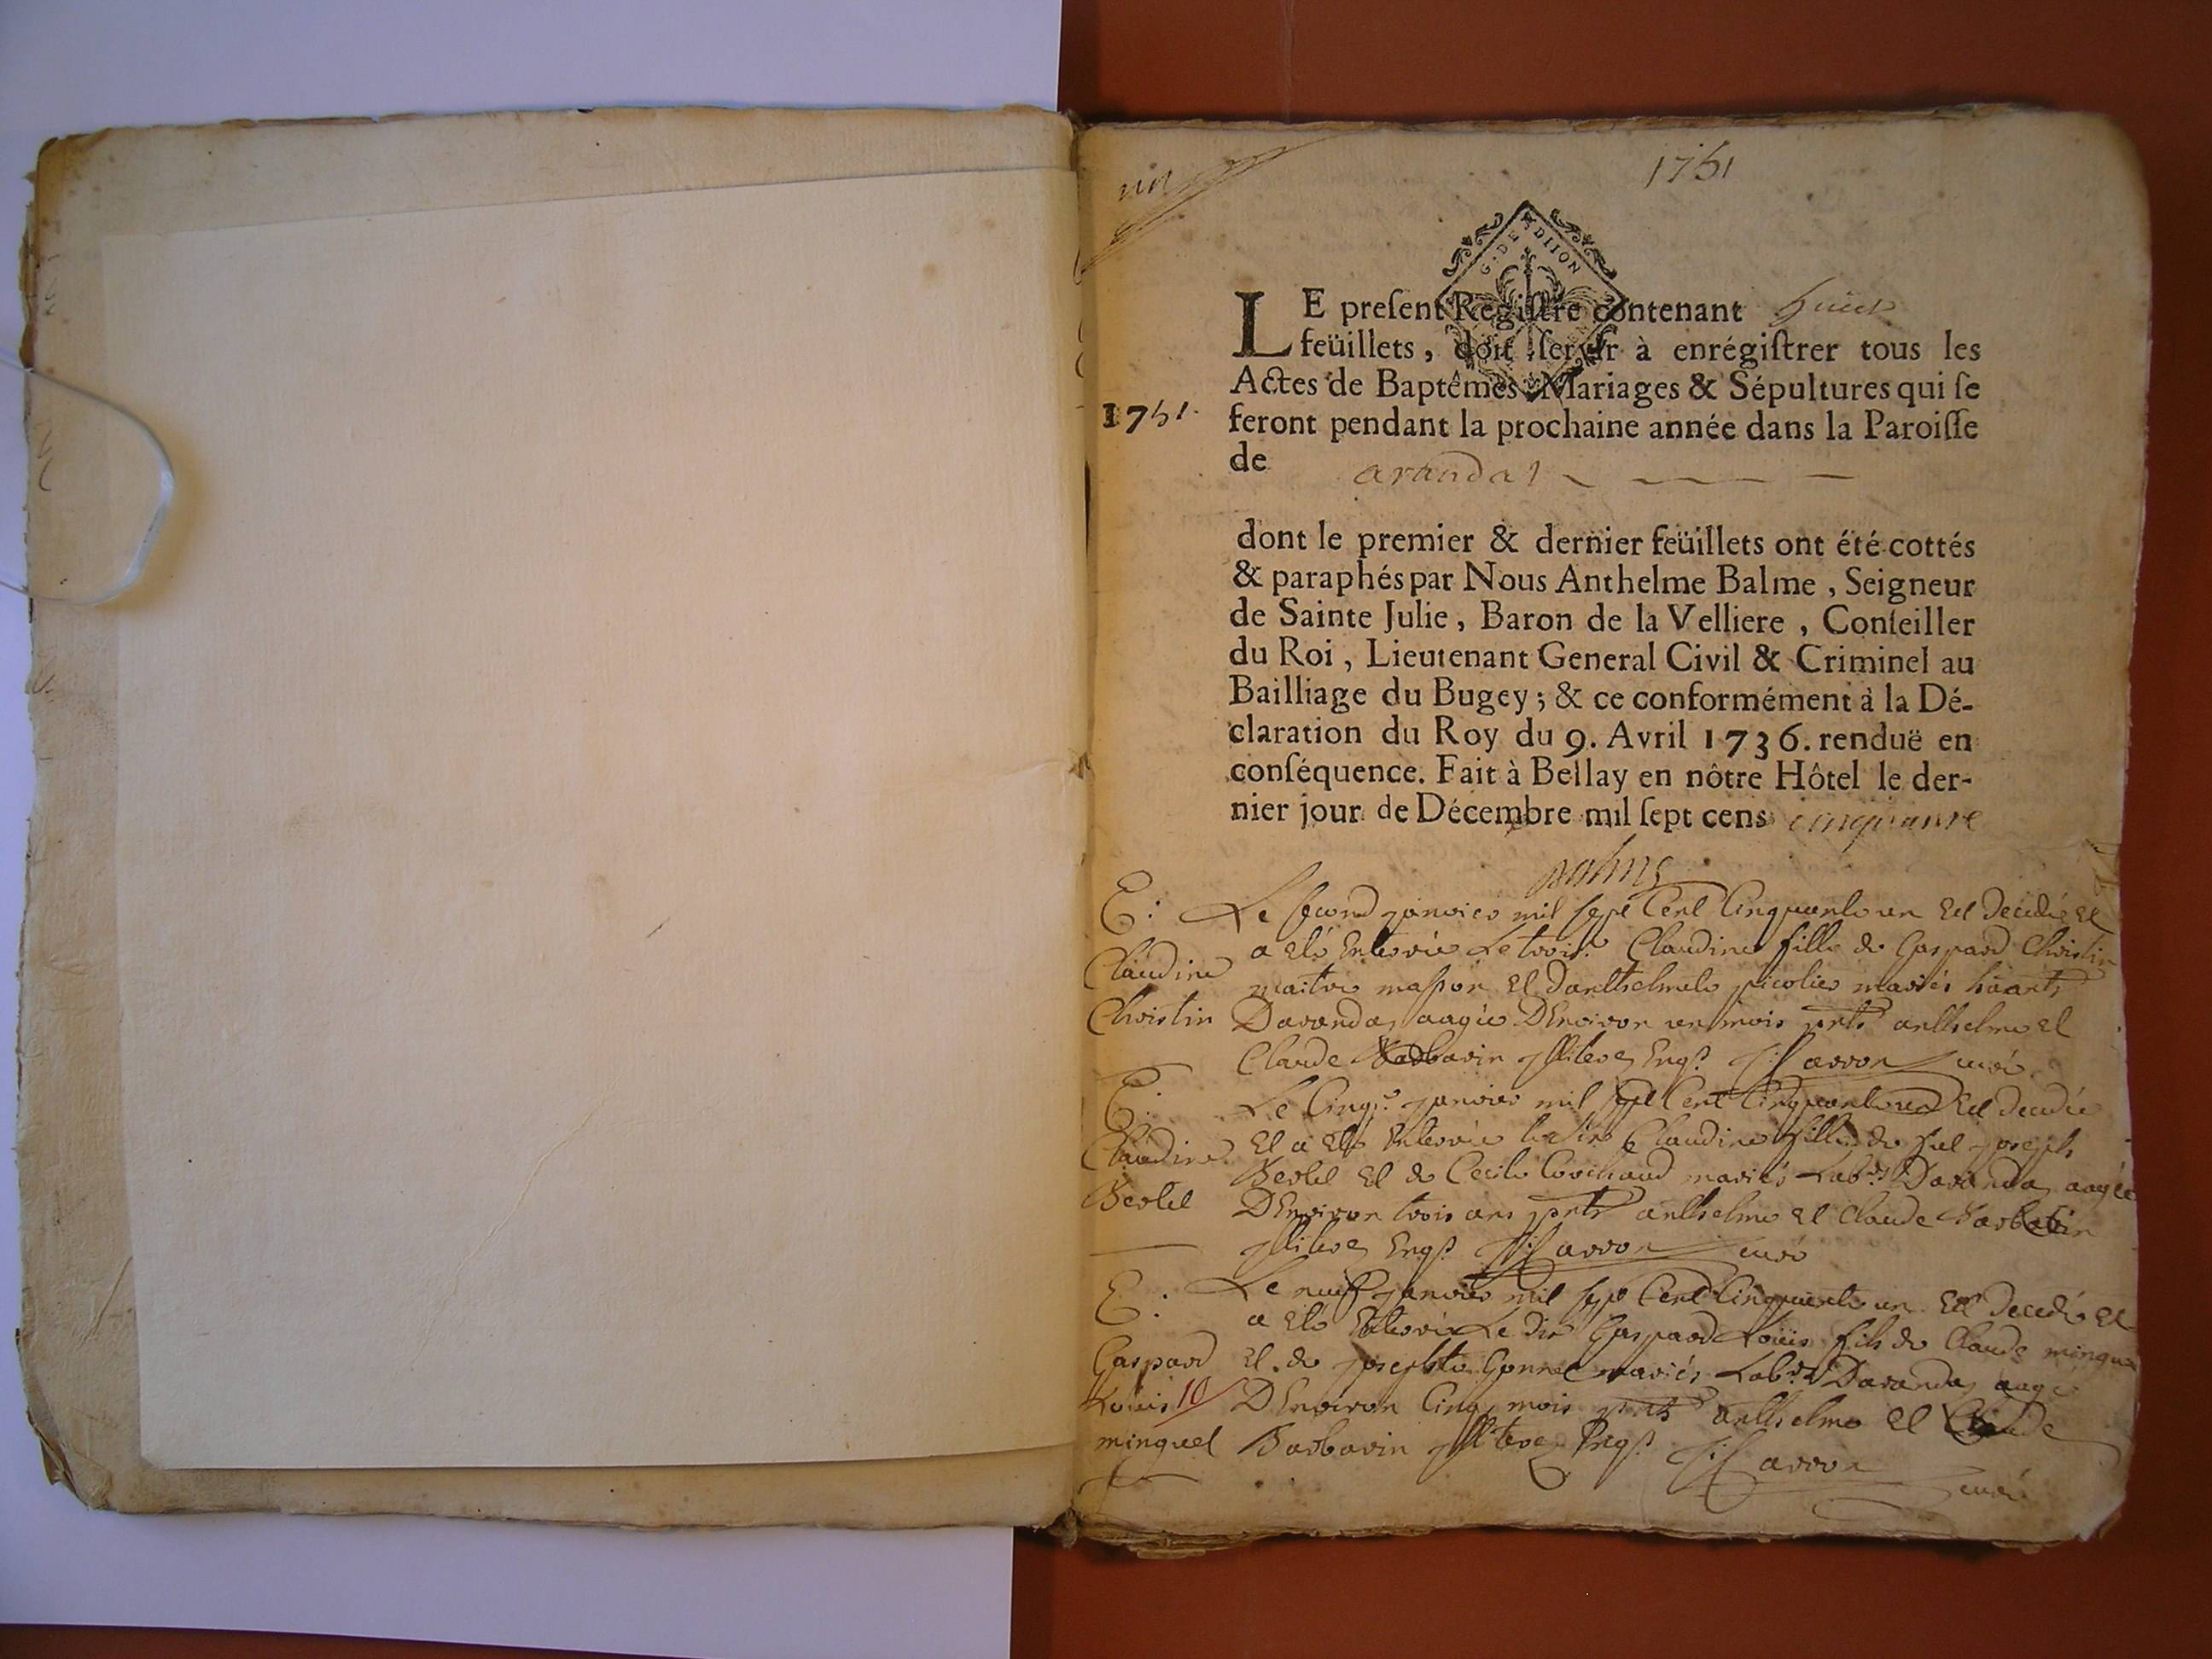 un
1751
G. DE DIJON
LE preſent Regiſtre contenant huict
feüillets, doit ſervir à enrégiſtrer tous les
Actes de Baptêmes, Mariages & Sépultures qui ſe
1751. feront pendant la prochaine année dans la Paroiſſe
de arandas
dont le premier & dernier feüillets ont été cottés
& paraphés par Nous Anthelme Balme, Seigneur
de Sainte Julie, Baron de la Velliere, Conſeiller
du Roi, Lieutenant General Civil & Criminel au
Bailliage du Bugey; & ce conformément à la Dé-
claration du Roy du 9. Avril 1736. renduë en
conſéquence. Fait à Bellay en nôtre Hôtel le der-
nier jour de Décembre mil ſept cens cinquante
Balme
E: Le second janvier mil sept Cent Cinquante un Est decedée Et
Claudine a Eté Enterrée Le trois.e Claudine fille de Gaspard Christin
maitre masson Et Danthelmete picolier mariés
Christin Darandas aagée DEnviron un mois pnts anthelme Et
Claude Barbarin Illiteres Enqs Carron curé
E: Le Cinq.e janvier mil sept Cent Cinquante un Est decedée
Claudine Et a Eté Enterrée Le Claudine fille de feu joseph
Bertel Bertel Et de Cecile mariés Lab.rs Darandas aagée
DEnviron trois ans pnts anthelme Et Claude Barbarin
Illiteres Enqs Carron curé
E: Le neuf janvier mil sept Cent Cinquante un Est decedé Et
a Eté Enterré Le dix Gaspard Loüis fils de Claude minguet
Gaspard Et de josephte Gonnet mariés Lab.rs Darandas aagé
Loüis 10 DEnviron Cinq mois pnts anthelme Et Claude
minguet Barbarin Illiteres Enqs Carron
curé